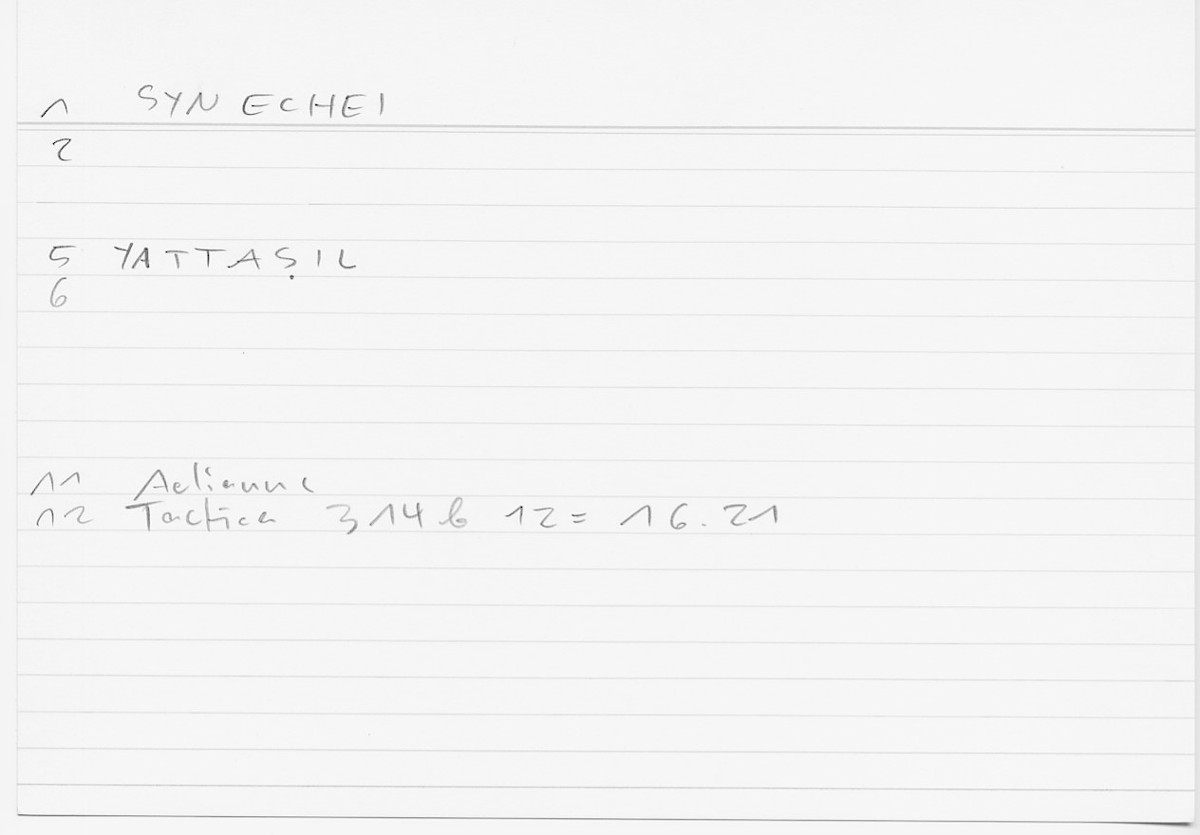 1 SYNECHEI
2
5 YATTAṢIL
6
11 Aelianus
12 Tactica 314b 12 = 16.21